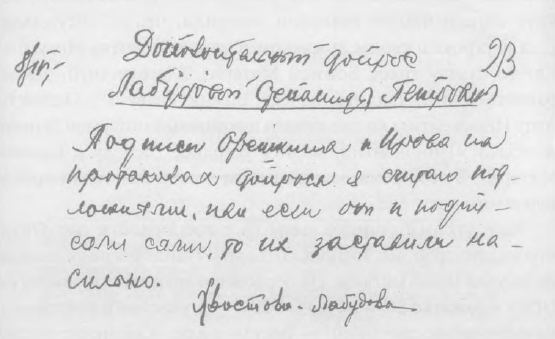 Дополнительный допрос 23
Лабудовой Степаниды Петровны
Подписи Орешкина и Ирова на
протоколах допроса я считаю под
ложными, или если они и подпи-
сали сами, то их заставили на-
сильно.
Хвостова-Лабудова